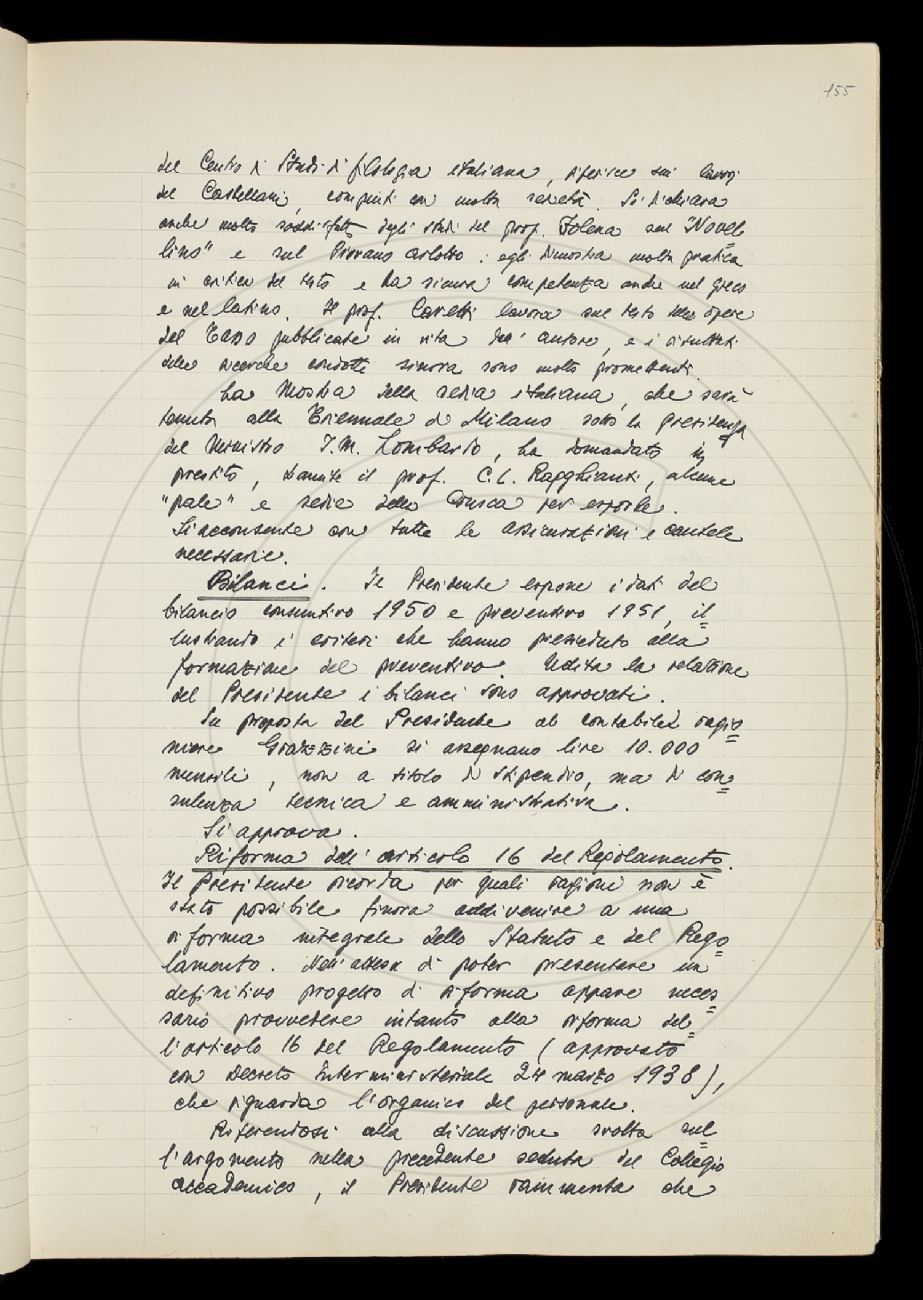 155
del Centro di Studi di filologia italiana, riferisce sui lavori
del Castellani, compiuti con molta serietà. Si dichiara
anche molto soddisfatto degli studi del prof. Folena sul "Novel=
lino" e sul Piovano Arlotto: egli dimostra molta pratica
in critica del testo e ha sicura competenza anche nel greco
e nel latino. Il prof. Caretti lavora sul testo delle opere
del Tasso pubblicate in vita dell'autore, e i risultati
delle ricerche condotte sinora sono molto promettenti.
La Mostra della sedia italiana, che sarà
tenuta alla Triennale di Milano sotto la presidenza
del Ministro I.M. Lombardo, ha domandato in
prestito, tramite il prof. C.L. Ragghianti, alcune
"pale" e sedie della Crusca per esporle.
Si acconsente con tutte le assicurazioni e cautele
necessarie.
Bilanci. Il Presidente espone i dati del
bilancio consuntivo 1950 e preventivo 1951, il=
lustrando i criteri che hanno presieduto alla
formazione del preventivo. Udita la relazione
del Presidente i bilanci sono approvati.
Su proposta del Presidente al contabile ragio=
niere Grazzini si assegnano lire 10.000
mensili, non a titolo di stipendio, ma di con=
sulenza tecnica e amministrativa.
Si approva.
Riforma dell'articolo 16 del Regolamento.
Il Presidente ricorda per quali ragioni non è
stato possibile finora addivenire a una
riforma integrale dello Statuto e del Rego=
lamento. Nell'attesa di poter presentare un
definitivo progetto di riforma appare neces=
sario provvedere intanto alla riforma del=
l'articolo 16 del Regolamento (approvato
con Decreto Interministeriale 24 marzo 1938),
che riguarda l'organico del personale.
Riferendosi alla discussione svolta sul=
l'argomento nella precedente seduta del Collegio
accademico, il Presidente rammenta che